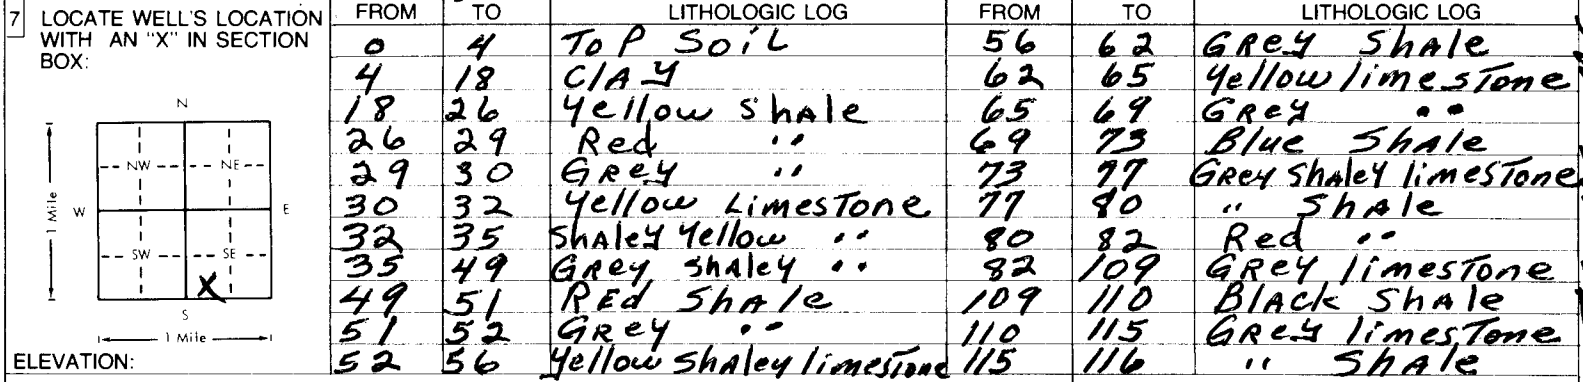 7 LOCATE WELL'S LOCATION WITH AN "X" IN SECTION BOX:
N
NW NE
W E
SW SE
X
S
1 Mile
1 Mile
ELEVATION:
FROM TO LITHOLOGIC LOG FROM TO LITHOLOGIC LOG
0 4 TOP SOIL 56 62 GREY ShAle
4 18 ClAY 62 65 Yellow limesTone
18 26 Yellow ShAle 65 69 GREY "
26 29 Red " 69 73 Blue ShAle
29 30 GREY " 73 77 GREY ShAleY limesTone
30 32 Yellow LimesTone 77 80 " ShAle
32 35 ShAleY Yellow " 80 82 Red "
35 49 GREY ShAley " 82 109 GREY limesTone
49 51 REd ShAle 109 110 BLACK ShAle
51 52 GREY " 110 115 GREY limesTone
52 56 Yellow ShAley limesTone 115 116 " ShAle